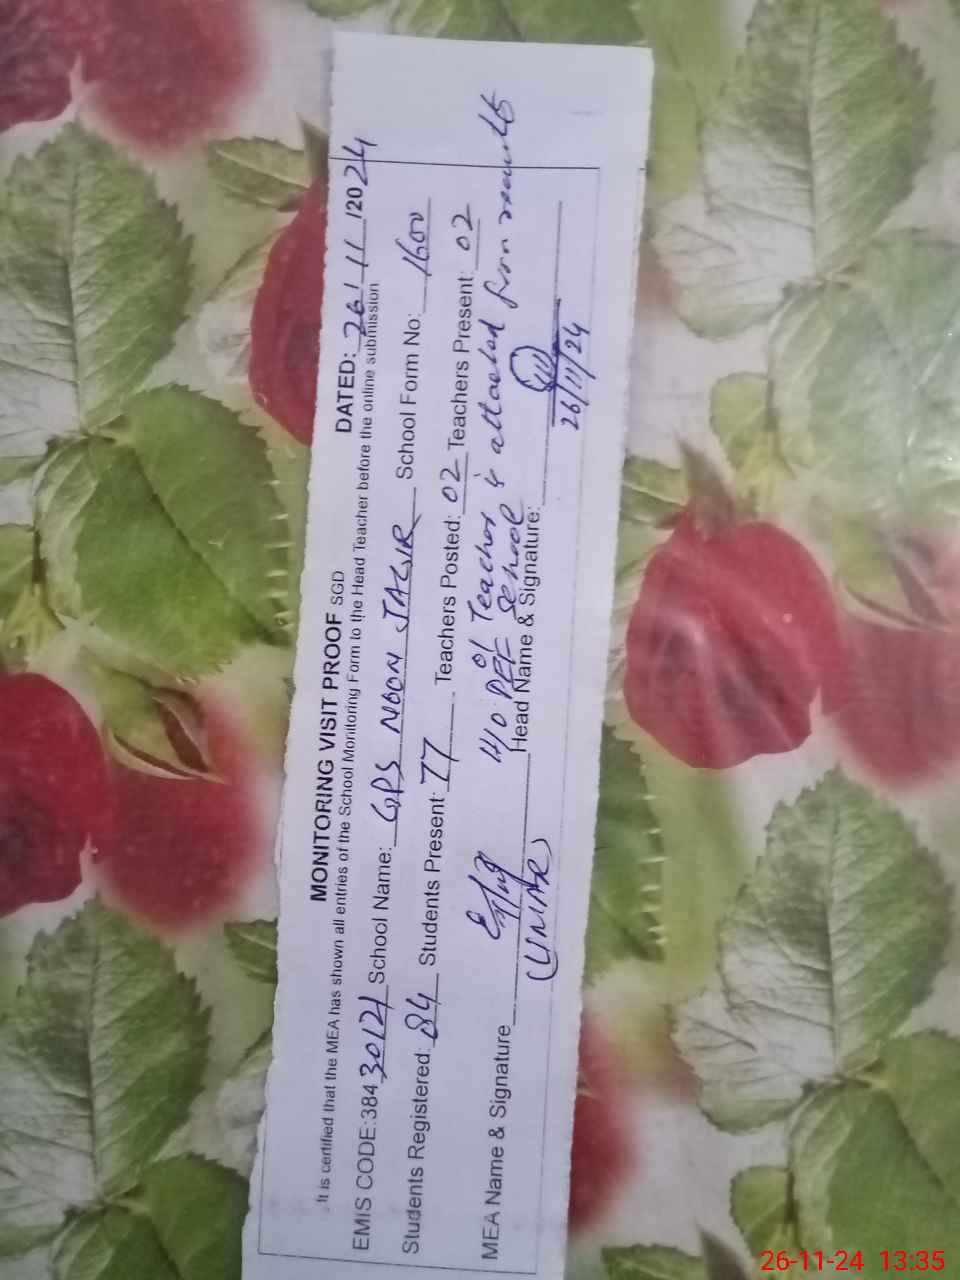 MONITORING VISIT PROOF SGD DATED: 26/11/2024
It is certified that the MEA has shown all entries of the School Monitoring Form to the Head Teacher before the online submission
EMIS CODE:38430121 School Name: GPS NOON JAGIR School Form No: 1600
Students Registered: 84 Students Present: 77 Teachers Posted: 02 Teachers Present: 02
01 Teacher is attached from
H/O PEF School
MEA Name & Signature Head Name & Signature:
(UMAR) 26/11/24
26-11-24 13:35